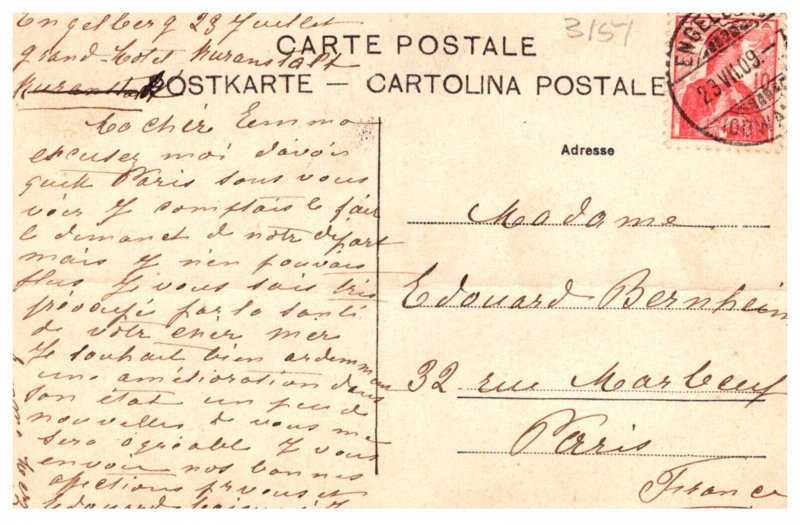 3151
CARTE POSTALE
POSTKARTE — CARTOLINA POSTALE
ENGELBERG
23.VII.09.
(OBWA
10
Engelberg 23 Juillet
grand-hotel Kuranstalt
Kuranstalt
Ma chère Emma
excusez moi d'avoir
quitté Paris sans vous
voir J comptais le fair
le dimanct de notre départ
mais J n'en pouvais
plus Je vous sais tris
préocupé par la santé
de votr cher mer
Je souhait bien ardemman
une amélioration dans
son état un peu de
nouvelles de vous me
sera agréable J vous
envoie nos bonnes
afections pr vous et
Edouard
Adresse
Madame
Edouard Bernheim
32 rue Marbeuf
Paris
France